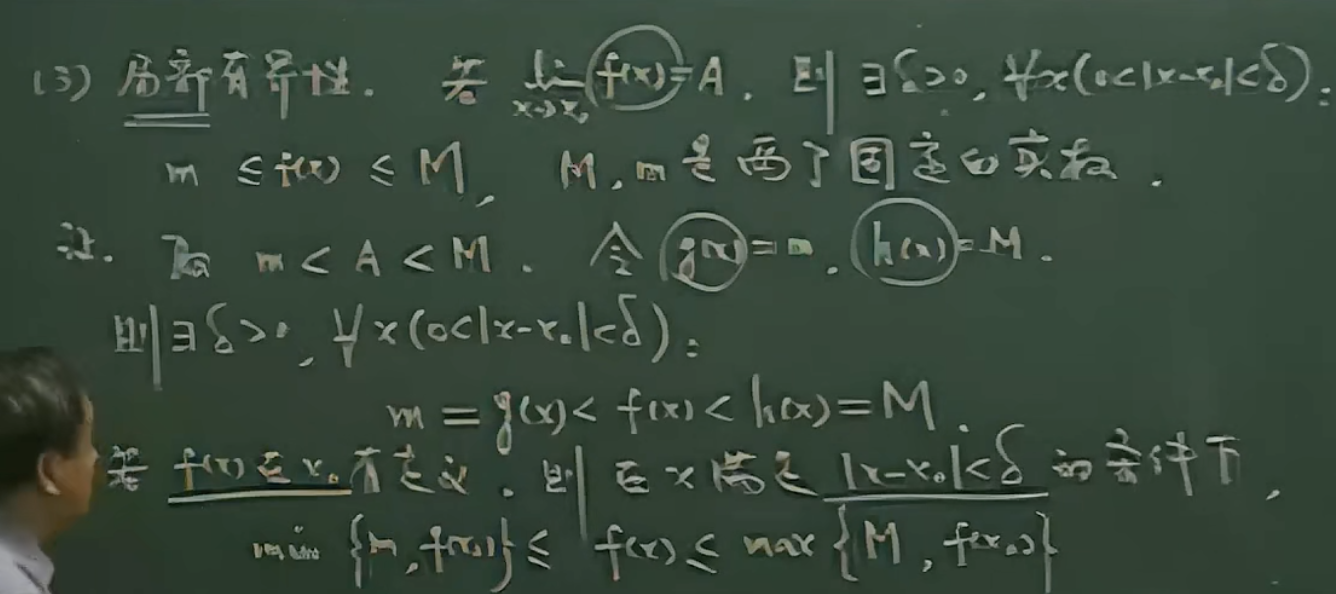 (3) 局部有界性. 若 lim_{x→x₀} f(x)=A. 则 ∃δ>0, ∀x(0<|x-x₀|<δ):
m ≤ f(x) ≤ M, M, m是两个固定的实数.
证. 取 m < A < M. 令 g(x)=m, h(x)=M.
则∃δ>0, ∀x(0<|x-x₀|<δ):
m = g(x) < f(x) < h(x) = M.
若 f(x)在x₀有定义. 则 在x满足 |x-x₀|<δ 的条件下,
min {m, f(x₀)} ≤ f(x) ≤ max {M, f(x₀)}